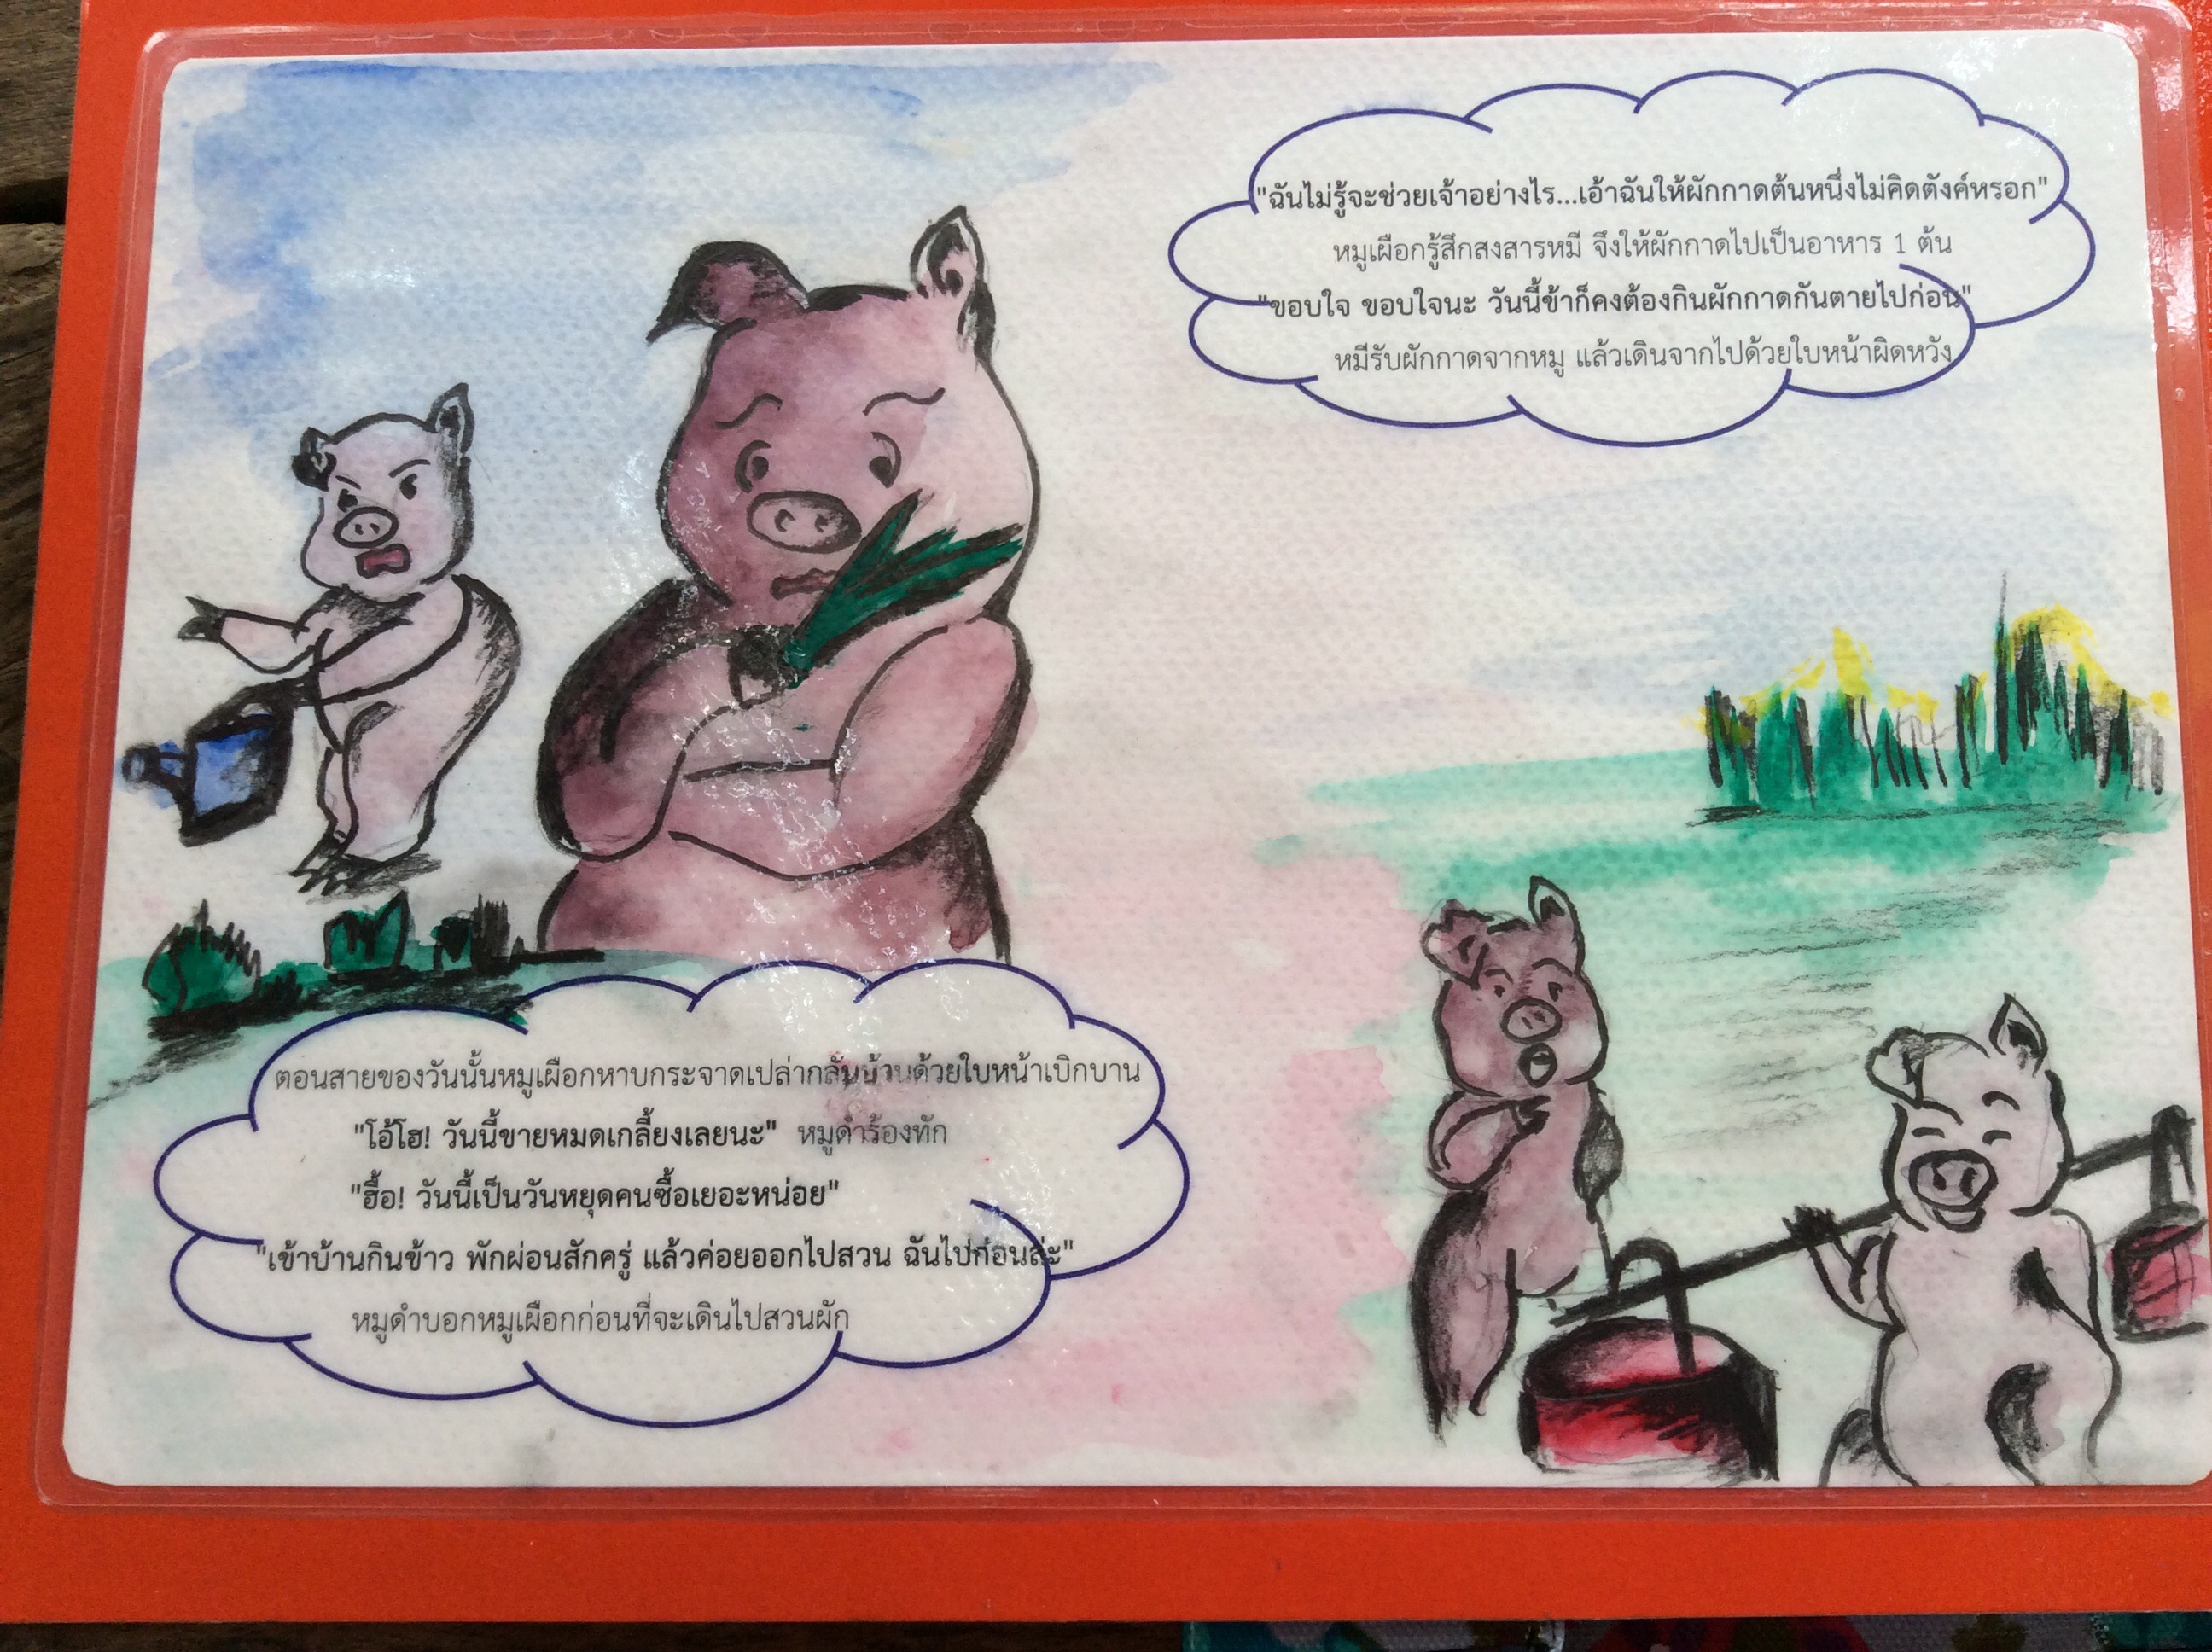 "ฉันไม่รู้จะช่วยเจ้าอย่างไร...เอ้าฉันให้ผักกาดต้นหนึ่งไม่คิดตังค์หรอก"
หมูเผือกรู้สึกสงสารหมี จึงให้ผักกาดไปเป็นอาหาร 1 ต้น
"ขอบใจ ขอบใจนะ วันนี้ข้าก็คงต้องกินผักกาดกันตายไปก่อน"
หมีรับผักกาดจากหมู แล้วเดินจากไปด้วยใบหน้าผิดหวัง
ตอนสายของวันนั้นหมูเผือกหาบกระจาดเปล่ากลับบ้านด้วยใบหน้าเบิกบาน
"โอ้โฮ! วันนี้ขายหมดเกลี้ยงเลยนะ" หมูดำร้องทัก
"ฮื้อ! วันนี้เป็นวันหยุดคนซื้อเยอะหน่อย"
"เข้าบ้านกินข้าว พักผ่อนสักครู่ แล้วค่อยออกไปสวน ฉันไปก่อนล่ะ"
หมูดำบอกหมูเผือกก่อนที่จะเดินไปสวนผัก